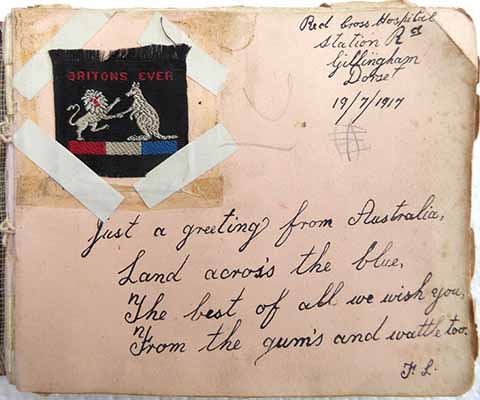 BRITONS EVER
Red Cross Hospital
Station Rd
Gillingham
Dorset
19/7/1917
Just a greeting from Australia,
Land across the blue,
The best of all we wish you,
From the gum's and wattle too.
F. L.